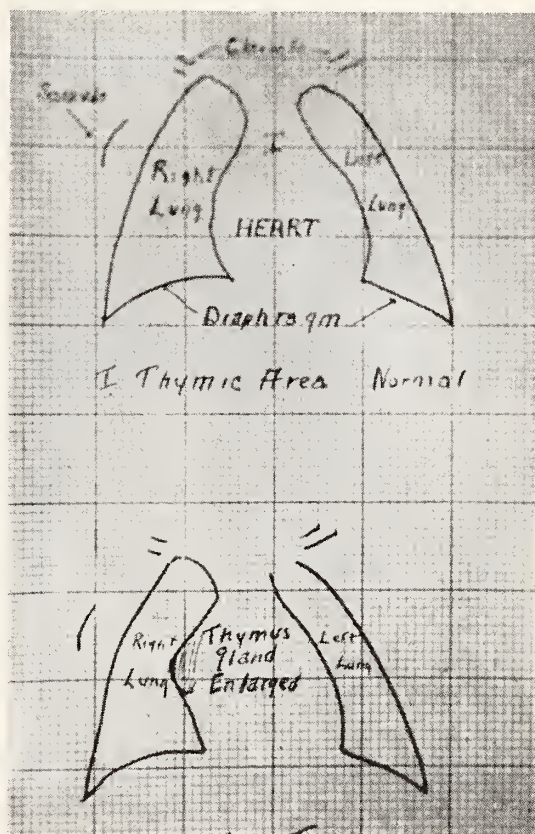 Right
Lung
I
Left
Lung
HEART
Diaphragm
I Thymic Area Normal
Right
Lung
Thymus
gland
Enlarged
Left
Lung